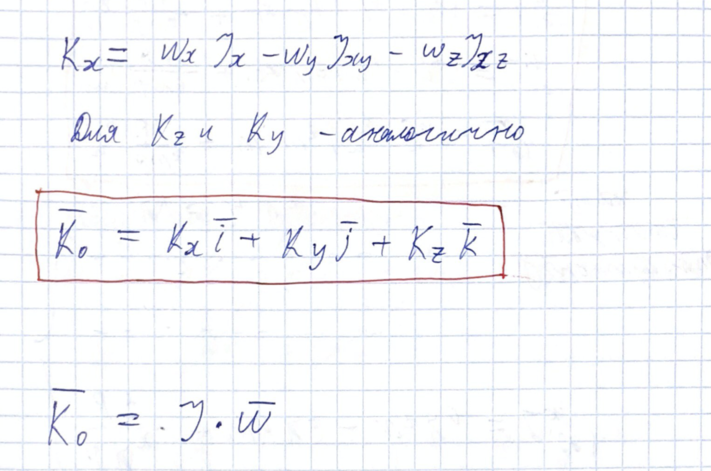 Kx = ωx Jx - ωy Jxy - ωz Jxz
Для Kz и Ky - аналогично
K̅₀ = Kx i̅ + Ky j̅ + Kz k̅
K̅₀ = J · ω̅